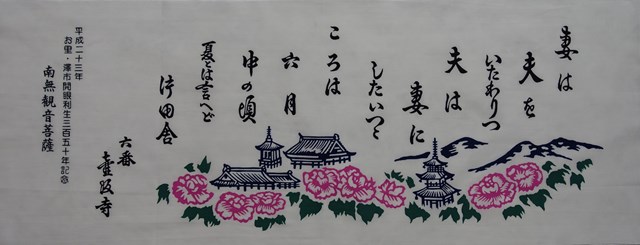 妻は
夫を
いたわりつ
夫は
妻に
したいつゝ
ころは
六月
中の頃
夏とは言へど
片田舎
六番
壷阪寺
平成二十三年
お里・澤市開眼利生三百五十年記念
南無観音菩薩